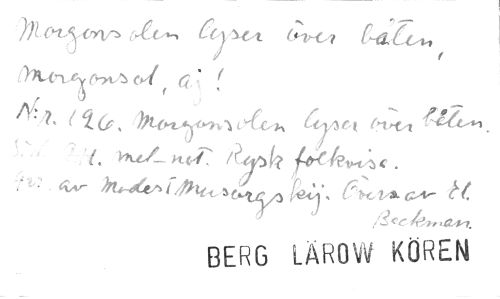 Morgonsolen lyser över båten,
morgonsol, aj!
N:r. 126. Morgonsolen lyser över båten.
mel-not. Rysk folkvisa.
av Modest Musorgskij. Övers av El.
Beckman.
BERG LÄROW KÖREN